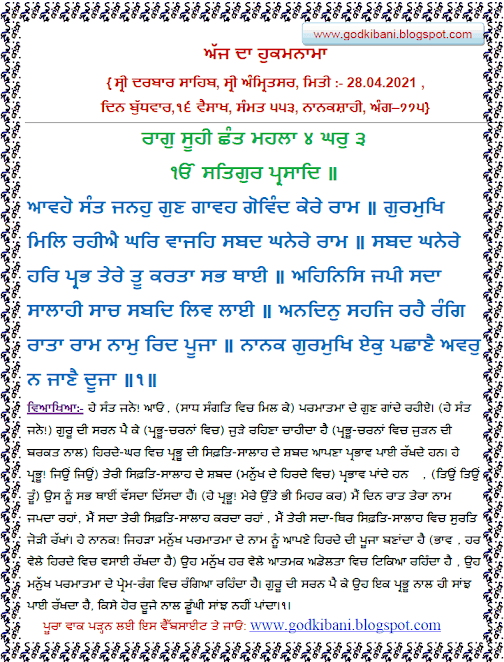 www.godkibani.blogspot.com
ਅੱਜ ਦਾ ਹੁਕਮਨਾਮਾ
{ ਸ੍ਰੀ ਦਰਬਾਰ ਸਾਹਿਬ, ਸ੍ਰੀ ਅੰਮ੍ਰਿਤਸਰ, ਮਿਤੀ :- 28.04.2021 ,
ਦਿਨ ਬੁੱਧਵਾਰ,੧੬ ਵੈਸਾਖ, ਸੰਮਤ ੫੫੩, ਨਾਨਕਸ਼ਾਹੀ, ਅੰਗ–੭੭੫}
ਰਾਗੁ ਸੂਹੀ ਛੰਤ ਮਹਲਾ ੪ ਘਰੁ ੩
ੴ ਸਤਿਗੁਰ ਪ੍ਰਸਾਦਿ ॥
ਆਵਹੋ ਸੰਤ ਜਨਹੁ ਗੁਣ ਗਾਵਹ ਗੋਵਿੰਦ ਕੇਰੇ ਰਾਮ ॥ ਗੁਰਮੁਖਿ
ਮਿਲਿ ਰਹੀਐ ਘਰਿ ਵਾਜਹਿ ਸਬਦ ਘਨੇਰੇ ਰਾਮ ॥ ਸਬਦ ਘਨੇਰੇ
ਹਰਿ ਪ੍ਰਭ ਤੇਰੇ ਤੂ ਕਰਤਾ ਸਭ ਥਾਈ ॥ ਅਹਿਨਿਸਿ ਜਪੀ ਸਦਾ
ਸਾਲਾਹੀ ਸਾਚ ਸਬਦਿ ਲਿਵ ਲਾਈ ॥ ਅਨਦਿਨੁ ਸਹਜਿ ਰਹੈ ਰੰਗਿ
ਰਾਤਾ ਰਾਮ ਨਾਮੁ ਰਿਦ ਪੂਜਾ ॥ ਨਾਨਕ ਗੁਰਮੁਖਿ ਏਕੁ ਪਛਾਣੈ ਅਵਰੁ
ਨ ਜਾਣੈ ਦੂਜਾ ॥੧॥
ਵਿਆਖਿਆ:- ਹੇ ਸੰਤ ਜਨੋ! ਆਓ , (ਸਾਧ ਸੰਗਤਿ ਵਿਚ ਮਿਲ ਕੇ) ਪਰਮਾਤਮਾ ਦੇ ਗੁਣ ਗਾਂਦੇ ਰਹੀਏ। (ਹੇ ਸੰਤ
ਜਨੋ!) ਗੁਰੂ ਦੀ ਸਰਨ ਪੈ ਕੇ (ਪ੍ਰਭੂ-ਚਰਨਾਂ ਵਿਚ) ਜੁੜੇ ਰਹਿਣਾ ਚਾਹੀਦਾ ਹੈ (ਪ੍ਰਭੂ-ਚਰਨਾਂ ਵਿਚ ਜੁੜਨ ਦੀ
ਬਰਕਤ ਨਾਲ) ਹਿਰਦੇ-ਘਰ ਵਿਚ ਪ੍ਰਭੂ ਦੀ ਸਿਫ਼ਤਿ-ਸਾਲਾਹ ਦੇ ਸ਼ਬਦ ਆਪਣਾ ਪ੍ਰਭਾਵ ਪਾਈ ਰੱਖਦੇ ਹਨ। ਹੇ
ਪ੍ਰਭੂ! ਜਿਉਂ ਜਿਉਂ) ਤੇਰੀ ਸਿਫ਼ਤਿ-ਸਾਲਾਹ ਦੇ ਸ਼ਬਦ (ਮਨੁੱਖ ਦੇ ਹਿਰਦੇ ਵਿਚ) ਪ੍ਰਭਾਵ ਪਾਂਦੇ ਹਨ , (ਤਿਉਂ ਤਿਉਂ
ਤੂੰ) ਉਸ ਨੂੰ ਸਭ ਥਾਈਂ ਵੱਸਦਾ ਦਿੱਸਦਾ ਹੈਂ। (ਹੇ ਪ੍ਰਭੂ! ਮੇਰੇ ਉੱਤੇ ਭੀ ਮਿਹਰ ਕਰ) ਮੈਂ ਦਿਨ ਰਾਤ ਤੇਰਾ ਨਾਮ
ਜਪਦਾ ਰਹਾਂ , ਮੈਂ ਸਦਾ ਤੇਰੀ ਸਿਫ਼ਤਿ-ਸਾਲਾਹ ਕਰਦਾ ਰਹਾਂ , ਮੈਂ ਤੇਰੀ ਸਦਾ-ਥਿਰ ਸਿਫ਼ਤਿ-ਸਾਲਾਹ ਵਿਚ ਸੁਰਤਿ
ਜੋੜੀ ਰੱਖਾਂ। ਹੇ ਨਾਨਕ! ਜਿਹੜਾ ਮਨੁੱਖ ਪਰਮਾਤਮਾ ਦੇ ਨਾਮ ਨੂੰ ਆਪਣੇ ਹਿਰਦੇ ਦੀ ਪੂਜਾ ਬਣਾਂਦਾ ਹੈ (ਭਾਵ , ਹਰ
ਵੇਲੇ ਹਿਰਦੇ ਵਿਚ ਵਸਾਈ ਰੱਖਦਾ ਹੈ) ਉਹ ਮਨੁੱਖ ਹਰ ਵੇਲੇ ਆਤਮਕ ਅਡੋਲਤਾ ਵਿਚ ਟਿਕਿਆ ਰਹਿੰਦਾ ਹੈ , ਉਹ
ਮਨੁੱਖ ਪਰਮਾਤਮਾ ਦੇ ਪ੍ਰੇਮ-ਰੰਗ ਵਿਚ ਰੰਗਿਆ ਰਹਿੰਦਾ ਹੈ। ਗੁਰੂ ਦੀ ਸਰਨ ਪੈ ਕੇ ਉਹ ਇਕ ਪ੍ਰਭੂ ਨਾਲ ਹੀ ਸਾਂਝ
ਪਾਈ ਰੱਖਦਾ ਹੈ, ਕਿਸੇ ਹੋਰ ਦੂਜੇ ਨਾਲ ਡੂੰਘੀ ਸਾਂਝ ਨਹੀਂ ਪਾਂਦਾ।੧।
ਪੂਰਾ ਵਾਕ ਪੜ੍ਹਨ ਲਈ ਇਸ ਵੈੱਬਸਾਈਟ ਤੇ ਜਾਓ: www.godkibani.blogspot.com